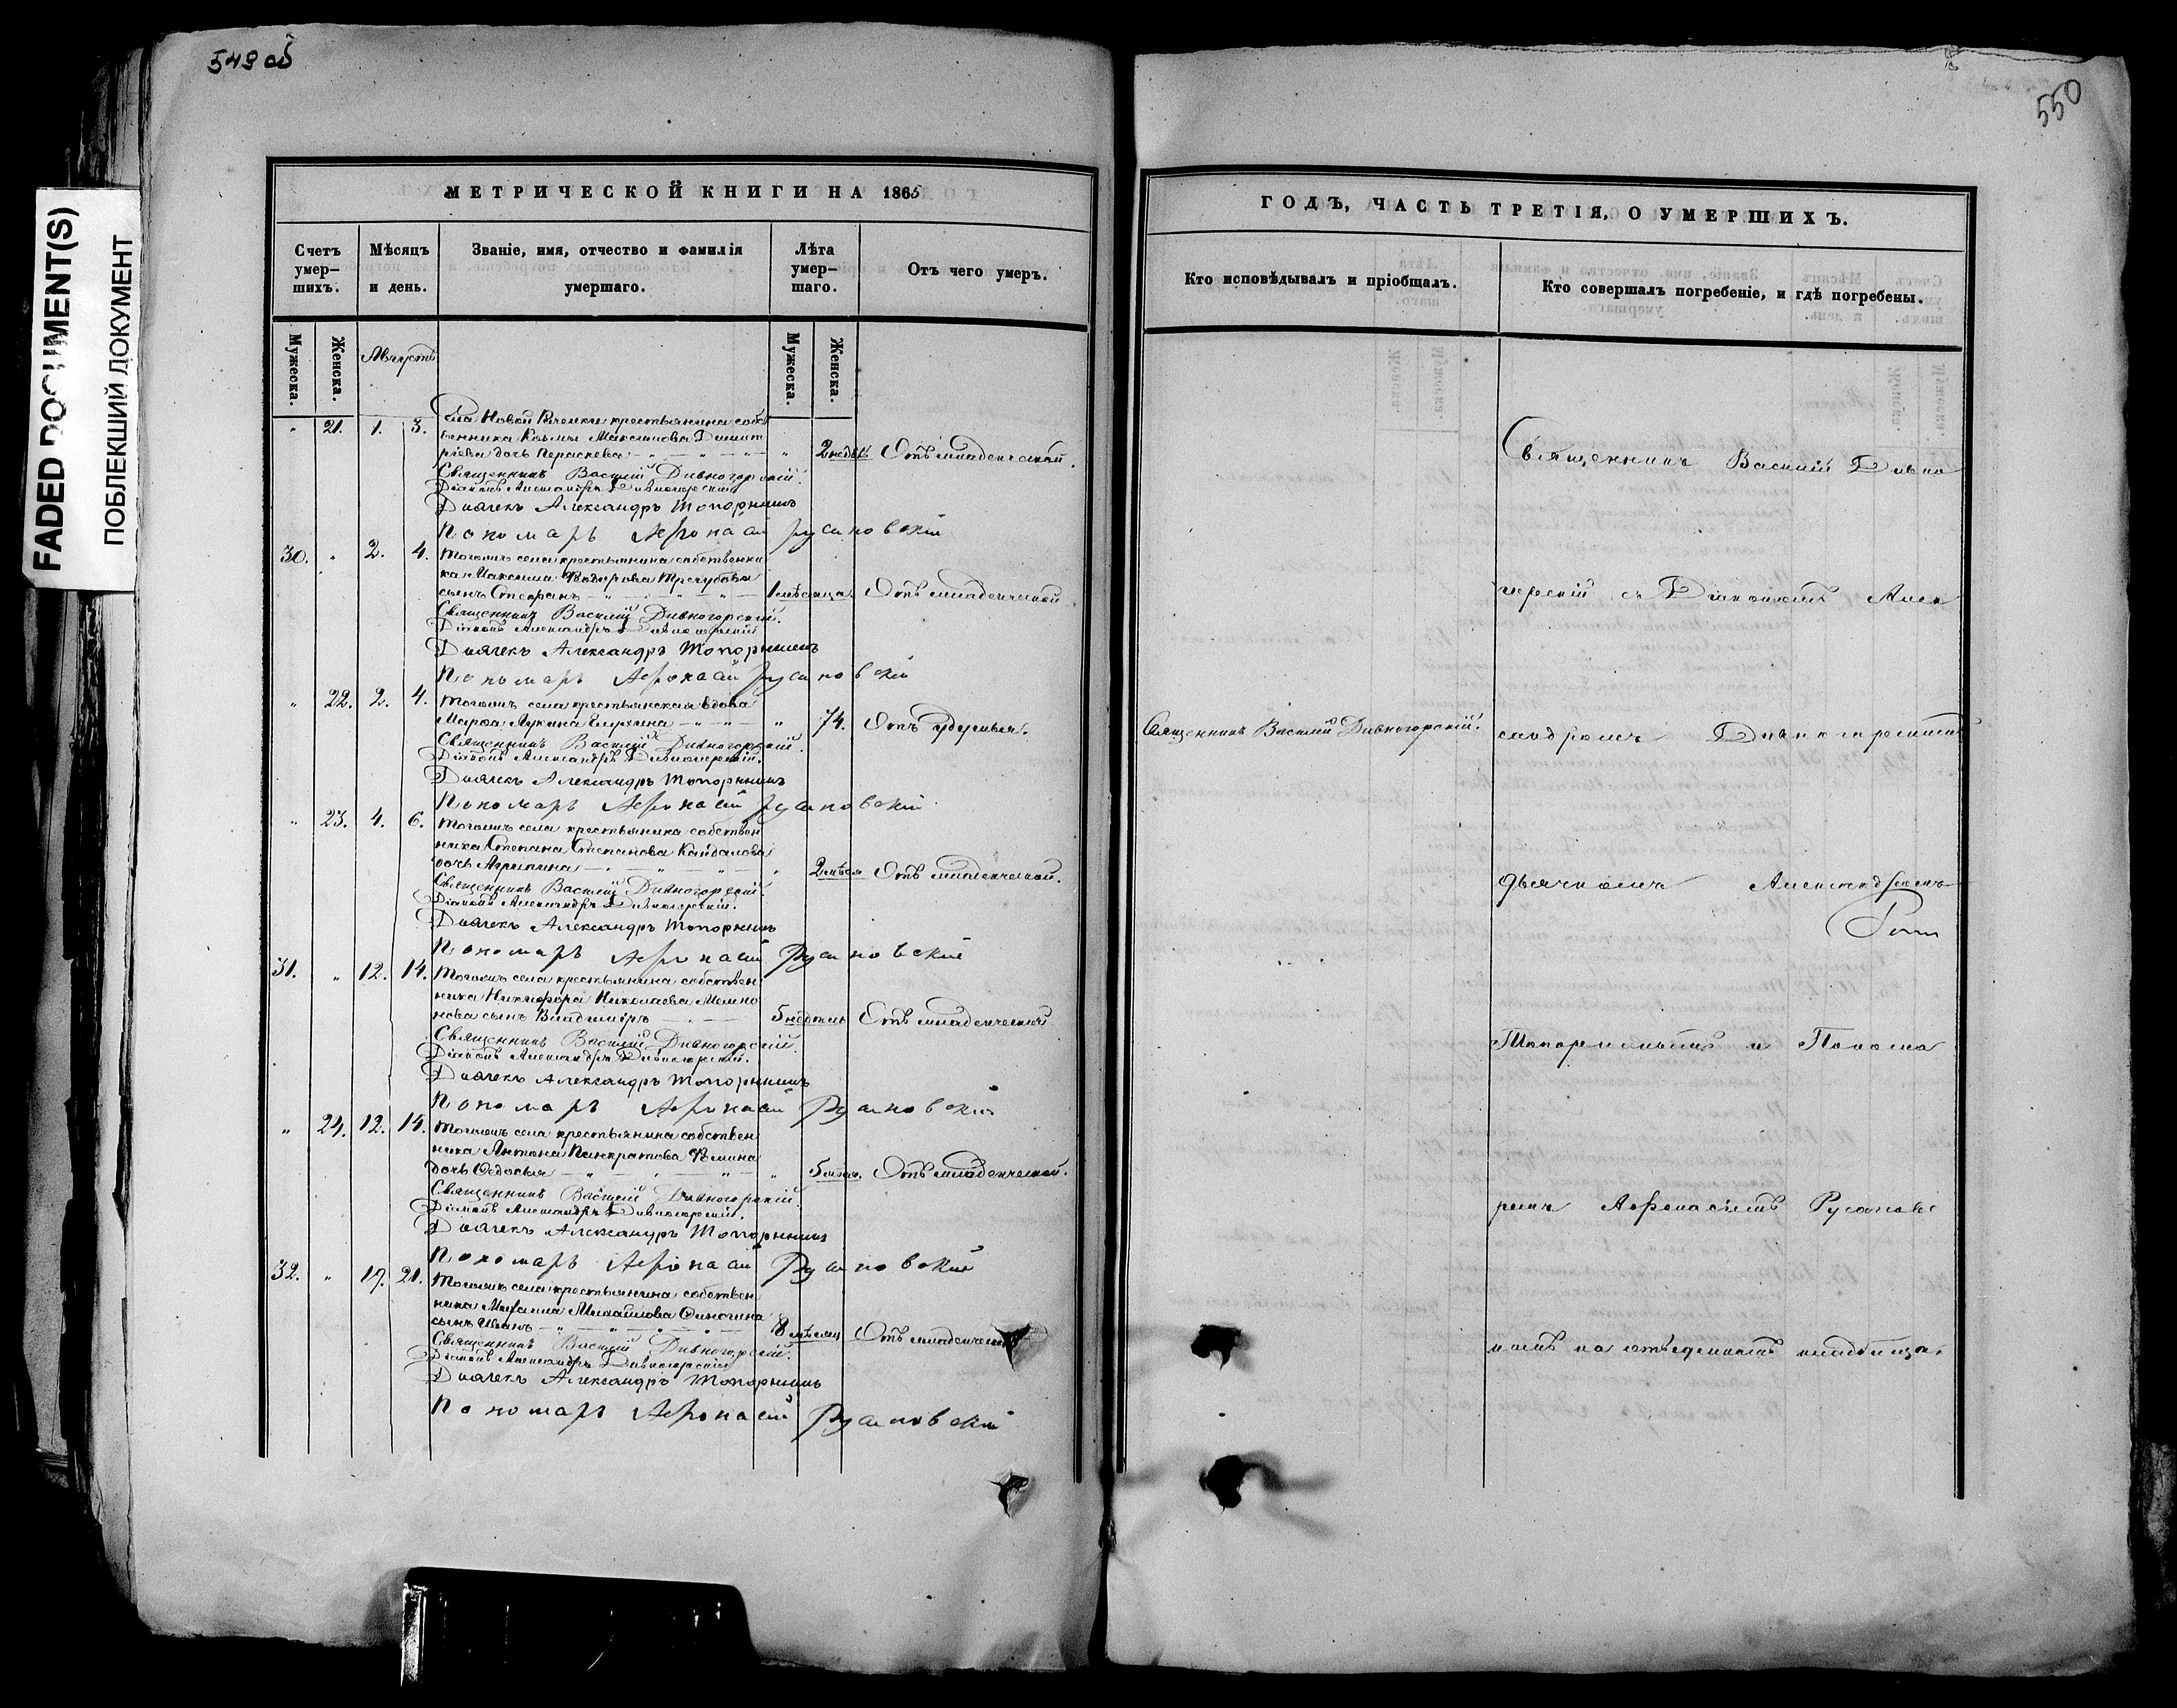 549 об
550
FADED DOCUMENT(S)
ПОБЛЕКШИЙ ДОКУМЕНТ
МЕТРИЧЕСКОЙ КНИГИ НА 1865
Счетъ умер-шихъ.
Мѣсяцъ и день.
Званіе, имя, отчество и фамилія умершаго.
Лѣта умер-шаго.
Отъ чего умеръ.
Мужеска.
Женска.
Августъ
Мужеска.
Женска.
„ 21. 1. 3. Села Новой крестьянина собст
венника Козьмы Максимова Димит
ріева дочь Параскева „ 2 недѣль Отъ младенческой.
Священникъ Василій Дивногорскій.
Діаконъ Александръ Дивногорскій
Дьячекъ Александръ Топорнинъ
Пономарь Афонасій Русановскій
30. „ 2. 4. Тогожъ села крестьянина собственни
ка Максима Ѳедорова Трегубова
сынъ Стефанъ 1 мѣсяца Отъ младенческой
Священникъ Василій Дивногорскій.
Діаконъ Александръ Дивногорскій
Дьячекъ Александръ Топорнинъ
Пономарь Афонасій Русановскій
„ 22. 2. 4. Тогожъ села крестьянская вдова
Марѳа Лукина „ 74. Отъ удушья.
Священникъ Василій Дивногорскій.
Діаконъ Александръ Дивногорскій.
Дьячекъ Александръ Топорнинъ
Пономарь Афонасій Русановскій
„ 23. 4. 6. Тогожъ села крестьянина собствен
ника Степана Степанова Кайдалова
дочь Агрипина „ 2 мѣся Отъ младенческой.
Священникъ Василій Дивногорскій.
Діаконъ Александръ Дивногорскій.
Дьячекъ Александръ Топорнинъ
Пономарь Афонасій Русановскій
31. „ 12. 14. Тогожъ села крестьянина собствен
ника Никифора Николаева
сынъ Владиміръ 5 недѣль Отъ младенческой
Священникъ Василій Дивногорскій.
Діаконъ Александръ Дивногорскій.
Дьячекъ Александръ Топорнинъ
Пономарь Афонасій Русановскій
„ 24. 12. 14. Тогожъ села крестьянина собствен
ника Антона Панкратова Ѳомина
дочь Ѳедосья „ Отъ младенческой.
Священникъ Василій Дивногорскій
Діаконъ Александръ Дивногорскій.
Дьячекъ Александръ Топорнинъ
Пономарь Афонасій Русановскій
32. „ 19. 21. Тогожъ села крестьянина собствен
ника Михаила Михайлова
сынъ Иванъ 8 мѣсяц Отъ младенческой
Священникъ Василій Дивногорскій.
Діаконъ Александръ Дивногорскій
Дьячекъ Александръ Топорнинъ
Пономарь Афонасій Русановскій
ГОДЪ, ЧАСТЬ ТРЕТІЯ, О УМЕРШИХЪ.
Кто исповѣдывалъ и пріобщалъ.
Кто совершалъ погребеніе, и гдѣ погребены.
Священникъ Василій Дивногорскій.
Священникъ Василій Дивно
горскій съ Діакономъ Алек
сандромъ Дивногорскимъ
дьячкомъ Александромъ
Топорнинымъ и Понома
ремъ Афонасіемъ Русановс
кимъ на отведенномъ кладбище.